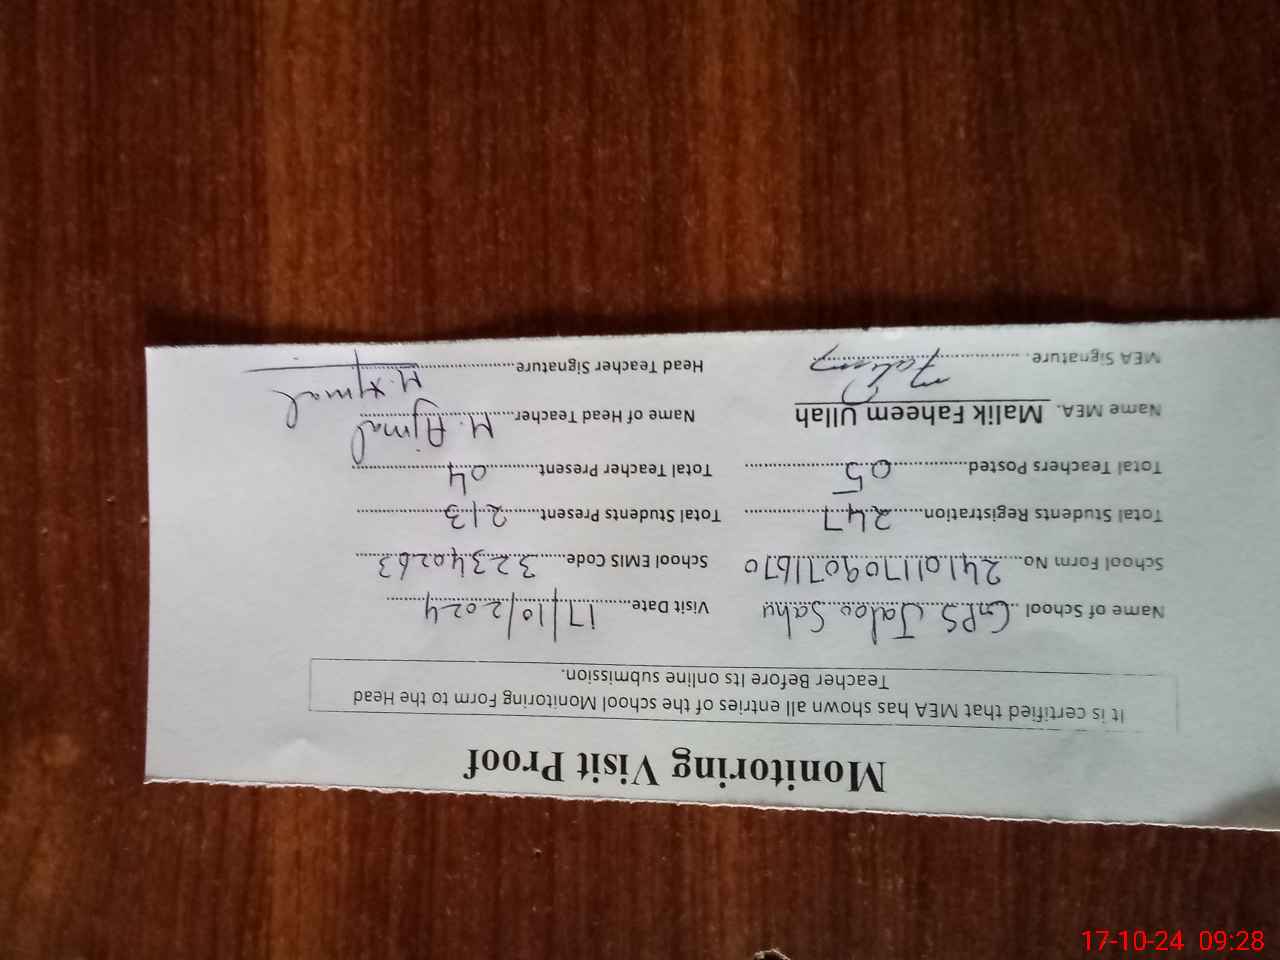 Monitoring Visit Proof
It is certified that MEA has shown all entries of the school Monitoring Form to the Head
Teacher Before Its online submission.
Name of School GPS Jaloo Sahu Visit Date 17/10/2024
School Form No. 241011709071670 School EMIS Code 32340263
Total Students Registration 247 Total Students Present 213
Total Teachers Posted 05 Total Teacher Present 04
Name MEA. Malik Faheem Ullah Name of Head Teacher M. Ajmal
MEA Signature. Faheem Head Teacher Signature M. Ajmal
17-10-24 09:28